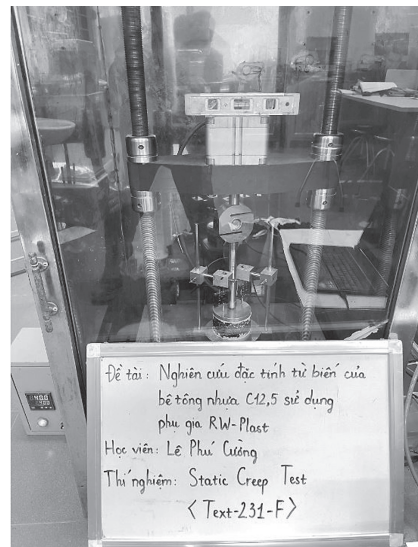 Đề tài: Nghiên cứu đặc tính từ biến của
bê tông nhựa C12,5 sử dụng
phụ gia RW-Plast
Học viên: Lê Phú Cường
Thí nghiệm: Static Creep Test
<Text-231-F>